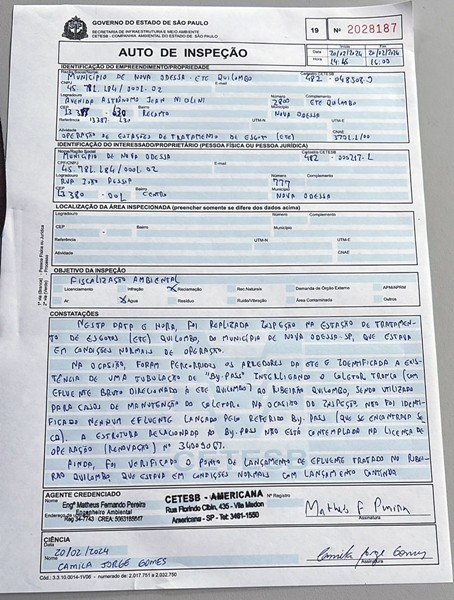 GOVERNO DO ESTADO DE SÃO PAULO
SECRETARIA DE INFRAESTRUTURA E MEIO AMBIENTE
CETESB - COMPANHIA AMBIENTAL DO ESTADO DE SÃO PAULO
19 Nº 2028187
AUTO DE INSPEÇÃO
Data 20/02/2024 20/02/2024
Hora 14:45 16:00
IDENTIFICAÇÃO DO EMPREENDIMENTO/PROPRIEDADE
Nome/Razão Social Cadastro CETESB
MUNICÍPIO DE NOVA ODESSA - ETE QUILOMBO 482-
CNPJ/CPF E-mail
45.781.184/0001-02
Logradouro Número Complemento
AVENIDA ASTRÔNOMO JEAN 2800 ETE QUILOMBO
CEP Bairro Município
RECANTO NOVA ODESSA
Referência UTM-N UTM-E
Atividade CNAE
OPERAÇÃO DE ESTAÇÕES DE TRATAMENTO DE ESGOTO (ETE) 3701.1/00
IDENTIFICAÇÃO DO INTERESSADO/PROPRIETÁRIO (PESSOA FÍSICA OU PESSOA JURÍDICA)
Nome/Razão Social Cadastro CETESB
MUNICÍPIO DE NOVA ODESSA 482 - 000217-2
CPF/CNPJ E-mail
45.781.184/0001-02
Logradouro Número Complemento
RUA JOÃO PESSOA 777
CEP Bairro Município
13380-001 CENTRO NOVA ODESSA
LOCALIZAÇÃO DA ÁREA INSPECIONADA (preencher somente se difere dos dados acima)
Logradouro Número Complemento
CEP Bairro Município
Referência UTM-N UTM-E
Atividade CNAE
OBJETIVO DA INSPEÇÃO
FISCALIZAÇÃO AMBIENTAL
Licenciamento Infração X Reclamação Rec.Naturais Demanda de Órgão Externo APM/APRM
Ar X Água Resíduo Ruído/Vibração Área Contaminada Outros
CONSTATAÇÕES
NESTA DATA E HORA, FOI REALIZADA INSPEÇÃO NA ESTAÇÃO DE TRATAMEN-
TO DE ESGOTOS (ETE) QUILOMBO, DO MUNICÍPIO DE NOVA ODESSA-SP, QUE ESTAVA
EM CONDIÇÕES NORMAIS DE OPERAÇÃO.
NA OCASIÃO, FORAM PERCORRIDOS OS ARREDORES DA ETE E IDENTIFICADA A EXIS-
TÊNCIA DE UMA TUBULAÇÃO DE "BY-PASS" INTERLIGANDO O COLETOR TRONCO (COM
EFLUENTE BRUTO DIRECIONADO À ETE QUILOMBO) AO RIBEIRÃO QUILOMBO, SENDO UTILIZADO
PARA CASOS DE MANUTENÇÃO DO COLETOR. NA OCASIÃO DE INSPEÇÃO NÃO FOI IDENTI-
FICADO NENHUM EFLUENTE LANÇADO PELO REFERIDO BY-PASS (QUE SE ENCONTRAVA SE-
CO). A ESTRUTURA RELACIONADA AO BY-PASS NÃO ESTÁ CONTEMPLADA NA LICENÇA DE
OPERAÇÃO (RENOVAÇÃO) Nº
AINDA, FOI VERIFICADO O PONTO DE LANÇAMENTO DE EFLUENTE TRATADO NO RIBEI-
RÃO QUILOMBO, QUE ESTAVA EM CONDIÇÕES NORMAIS COM LANÇAMENTO CONTÍNUO
AGENTE CREDENCIADO
Nome Engº Matheus Fernando Pereira
Engenheiro Ambiental
Reg 34-7743 CREA: 5063165647
CETESB - AMERICANA Nº Registro
Rua Florindo Cibin, 435 - Vila Medon
Americana - SP - Tel: 3461-1550
Matheus F Pereira
Assinatura
CIÊNCIA
Data 20/02/2024
Nome CAMILA JORGE GOMES
Camila Jorge Gomes
Assinatura
Cód.: 3.3.10.0014-1V06 - numerado de: 2.017.751 a 2.032.750